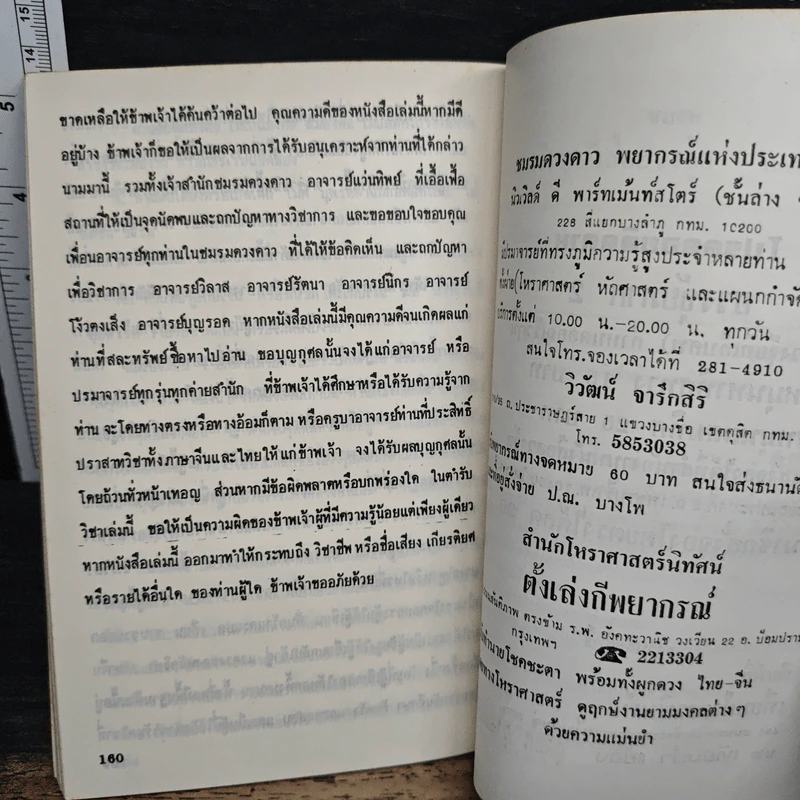 ขาดเหลือให้ข้าพเจ้าได้ค้นคว้าต่อไป คุณความดีของหนังสือเล่มนี้หากมีดี
อยู่บ้าง ข้าพเจ้าก็ขอให้เป็นผลจากการได้รับอนุเคราะห์จากท่านที่ได้กล่าว
นามมานี้ รวมทั้งเจ้าสำนักชมรมดวงดาว อาจารย์แว่นทิพย์ ที่เอื้อเฟื้อ
สถานที่ให้เป็นจุดนัดพบและถกปัญหาทางวิชาการ และขอขอบใจขอบคุณ
เพื่อนอาจารย์ทุกท่านในชมรมดวงดาว ที่ได้ให้ข้อคิดเห็น และถกปัญหา
เพื่อวิชาการ อาจารย์วิลาส อาจารย์รัตนา อาจารย์นิกร อาจารย์
โง้วตงเส็ง อาจารย์บุญรอด หากหนังสือเล่มนี้มีคุณความดีจนเกิดผลแก่
ท่านที่สละทรัพย์ซื้อหาไปอ่าน ขอบุญกุศลนั้นจงได้แก่อาจารย์ หรือ
ปรมาจารย์ทุกรุ่นทุกค่ายสำนัก ที่ข้าพเจ้าได้ศึกษาหรือได้รับความรู้จาก
ท่าน จะโดยทางตรงหรือทางอ้อมก็ตาม หรือครูบาอาจารย์ท่านที่ประสิทธิ์
ปราสาทวิชาทั้งภาษาจีนและไทยให้แก่ข้าพเจ้า จงได้รับผลบุญกุศลนั้น
โดยถ้วนทั่วหน้าเทอญ ส่วนหากมีข้อผิดพลาดหรือบกพร่องใด ในตำรับ
วิชาเล่มนี้ ขอให้เป็นความผิดของข้าพเจ้าผู้ที่มีความรู้น้อยแต่เพียงผู้เดียว
หากหนังสือเล่มนี้ ออกมาทำให้กระทบถึง วิชาชีพ หรือชื่อเสียง เกียรติยศ
หรือรายได้อื่นใด ของท่านผู้ใด ข้าพเจ้าขออภัยด้วย
160
ชมรมดวงดาว พยากรณ์แห่งประเท
นิวเวิลด์ ดี พาร์ทเม้นท์สโตร์ (ชั้นล่าง
228 สี่แยกบางลำภู กทม. 10200
ปรมาจารย์ที่ทรงภูมิความรู้สูงประจำหลายท่าน
โหราศาสตร์ หัตถศาสตร์ และแผนกกำจัด
บริการตั้งแต่ 10.00 น.-20.00 น. ทุกวัน
สนใจโทร.จองเวลาได้ที่ 281-4910
วิวัฒน์ จารึกสิริ
ถ. ประชาราษฎร์สาย 1 แขวงบางซื่อ เขตดุสิต กทม.
โทร. 5853038
พยากรณ์ทางจดหมาย 60 บาท สนใจส่งธนาณัติ
สั่งจ่าย ป.ณ. บางโพ
สำนักโหราศาสตร์นิทัศน์
ตั้งเล่งกีพยากรณ์
สันติภาพ ตรงข้าม ร.พ. ยังคทะวานิช วงเวียน 22 อ. ป้อมปราบ
กรุงเทพฯ
☎ 2213304
ทำนายโชคชะตา พร้อมทั้งผูกดวง ไทย-จีน
ทางโหราศาสตร์ ดูฤกษ์งานยามมงคลต่าง ๆ
ด้วยความแม่นยำ
5
4
15
14